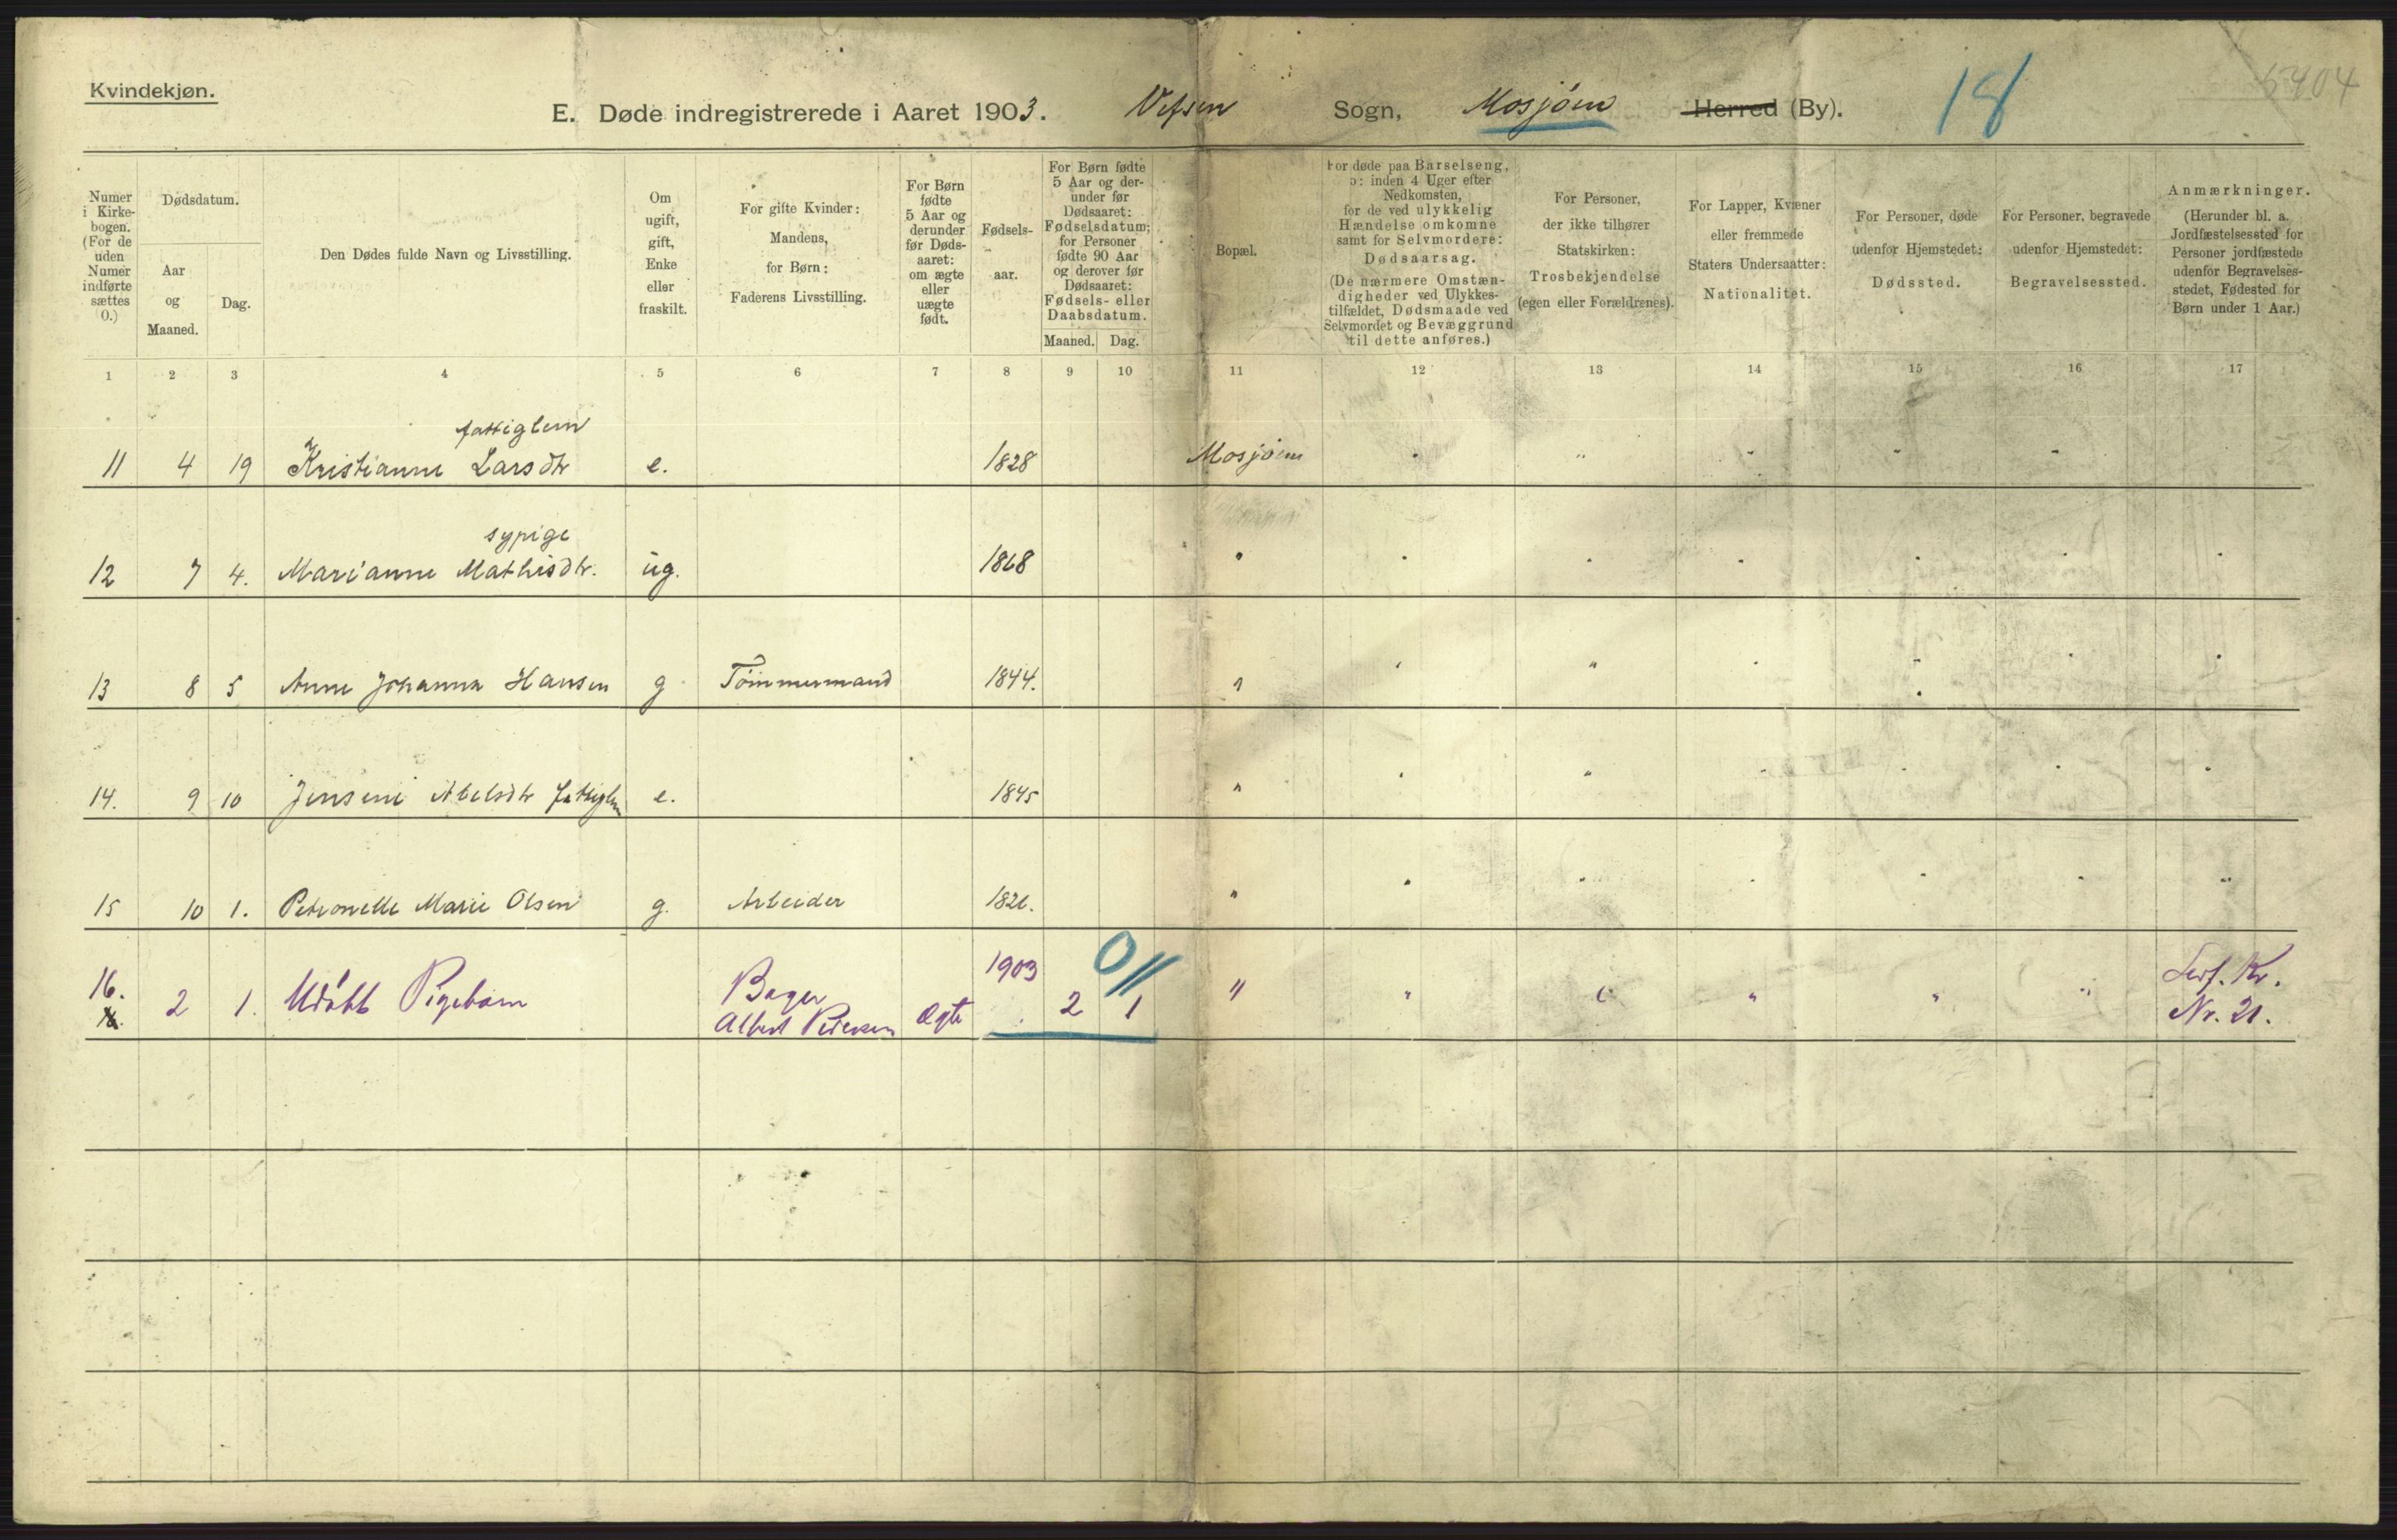 Kvindekjøn.
5404
E. Døde indregistrerede i Aaret 1903. Vefsen Sogn, Mosjøen Herred (By). 18
Numer i Kirke-bogen. (For de uden Numer indførte sættes 0.)
Dødsdatum.
Aar og Maaned.
Dag.
Den Dødes fulde Navn og Livsstilling.
Om ugift, gift, Enke eller fraskilt.
For gifte Kvinder: Mandens, for Børn: Faderens Livsstilling.
For Børn fødte 5 Aar og derunder før Døds-aaret: om ægte eller uægte født.
Fødsels-aar.
For Børn fødte 5 Aar og der-under før Dødsaaret: Fødselsdatum; for Personer fødte 90 Aar og derover før Dødsaaret: Fødsels- eller Daabsdatum.
Maaned. Dag.
Bopæl.
For døde paa Barselseng, ɔ: inden 4 Uger efter Nedkomsten, for de ved ulykkelig Hændelse omkomne samt for Selvmordere: Dødsaarsag.
(De nærmere Omstæn-digheder ved Ulykkes-tilfældet, Dødsmaade ved Selvmordet og Bevæggrund til dette anføres.)
For Personer, der ikke tilhører Statskirken: Trosbekjendelse (egen eller Forældrenes).
For Lapper, Kvæner eller fremmede Staters Undersaatter: Nationalitet.
For Personer, døde udenfor Hjemstedet: Dødssted.
For Personer, begravede udenfor Hjemstedet: Begravelsessted.
Anmærkninger.
(Herunder bl. a. Jordfæstelsessted for Personer jordfæstede udenfor Begravelses-stedet, Fødested for Børn under 1 Aar.)
1 2 3 4 5 6 7 8 9 10 11 12 13 14 15 16 17
fattiglem
11 4 19 Kristianne Larsdtr e. 1828 Mosjøen " " " " "
sypige
12 7 4. Marianne Mathisdtr. ug. 1868 " " " " " " "
13 8 5 Anne Johanna Hansen g Tømmermand 1844. " " " " " " "
14. 9 10 Jensine Abelsdtr fattiglem e. 1845 " " " " " " "
15 10 1. Petronelle Marie Olsen g. Arbeider 1826. " " " " " " "
16. 2 1. Udøbt Pigebarn Bager Albert Pedersen Ægte 1903 2 1 0/11 " " " " " " Kr. Nr. 21.